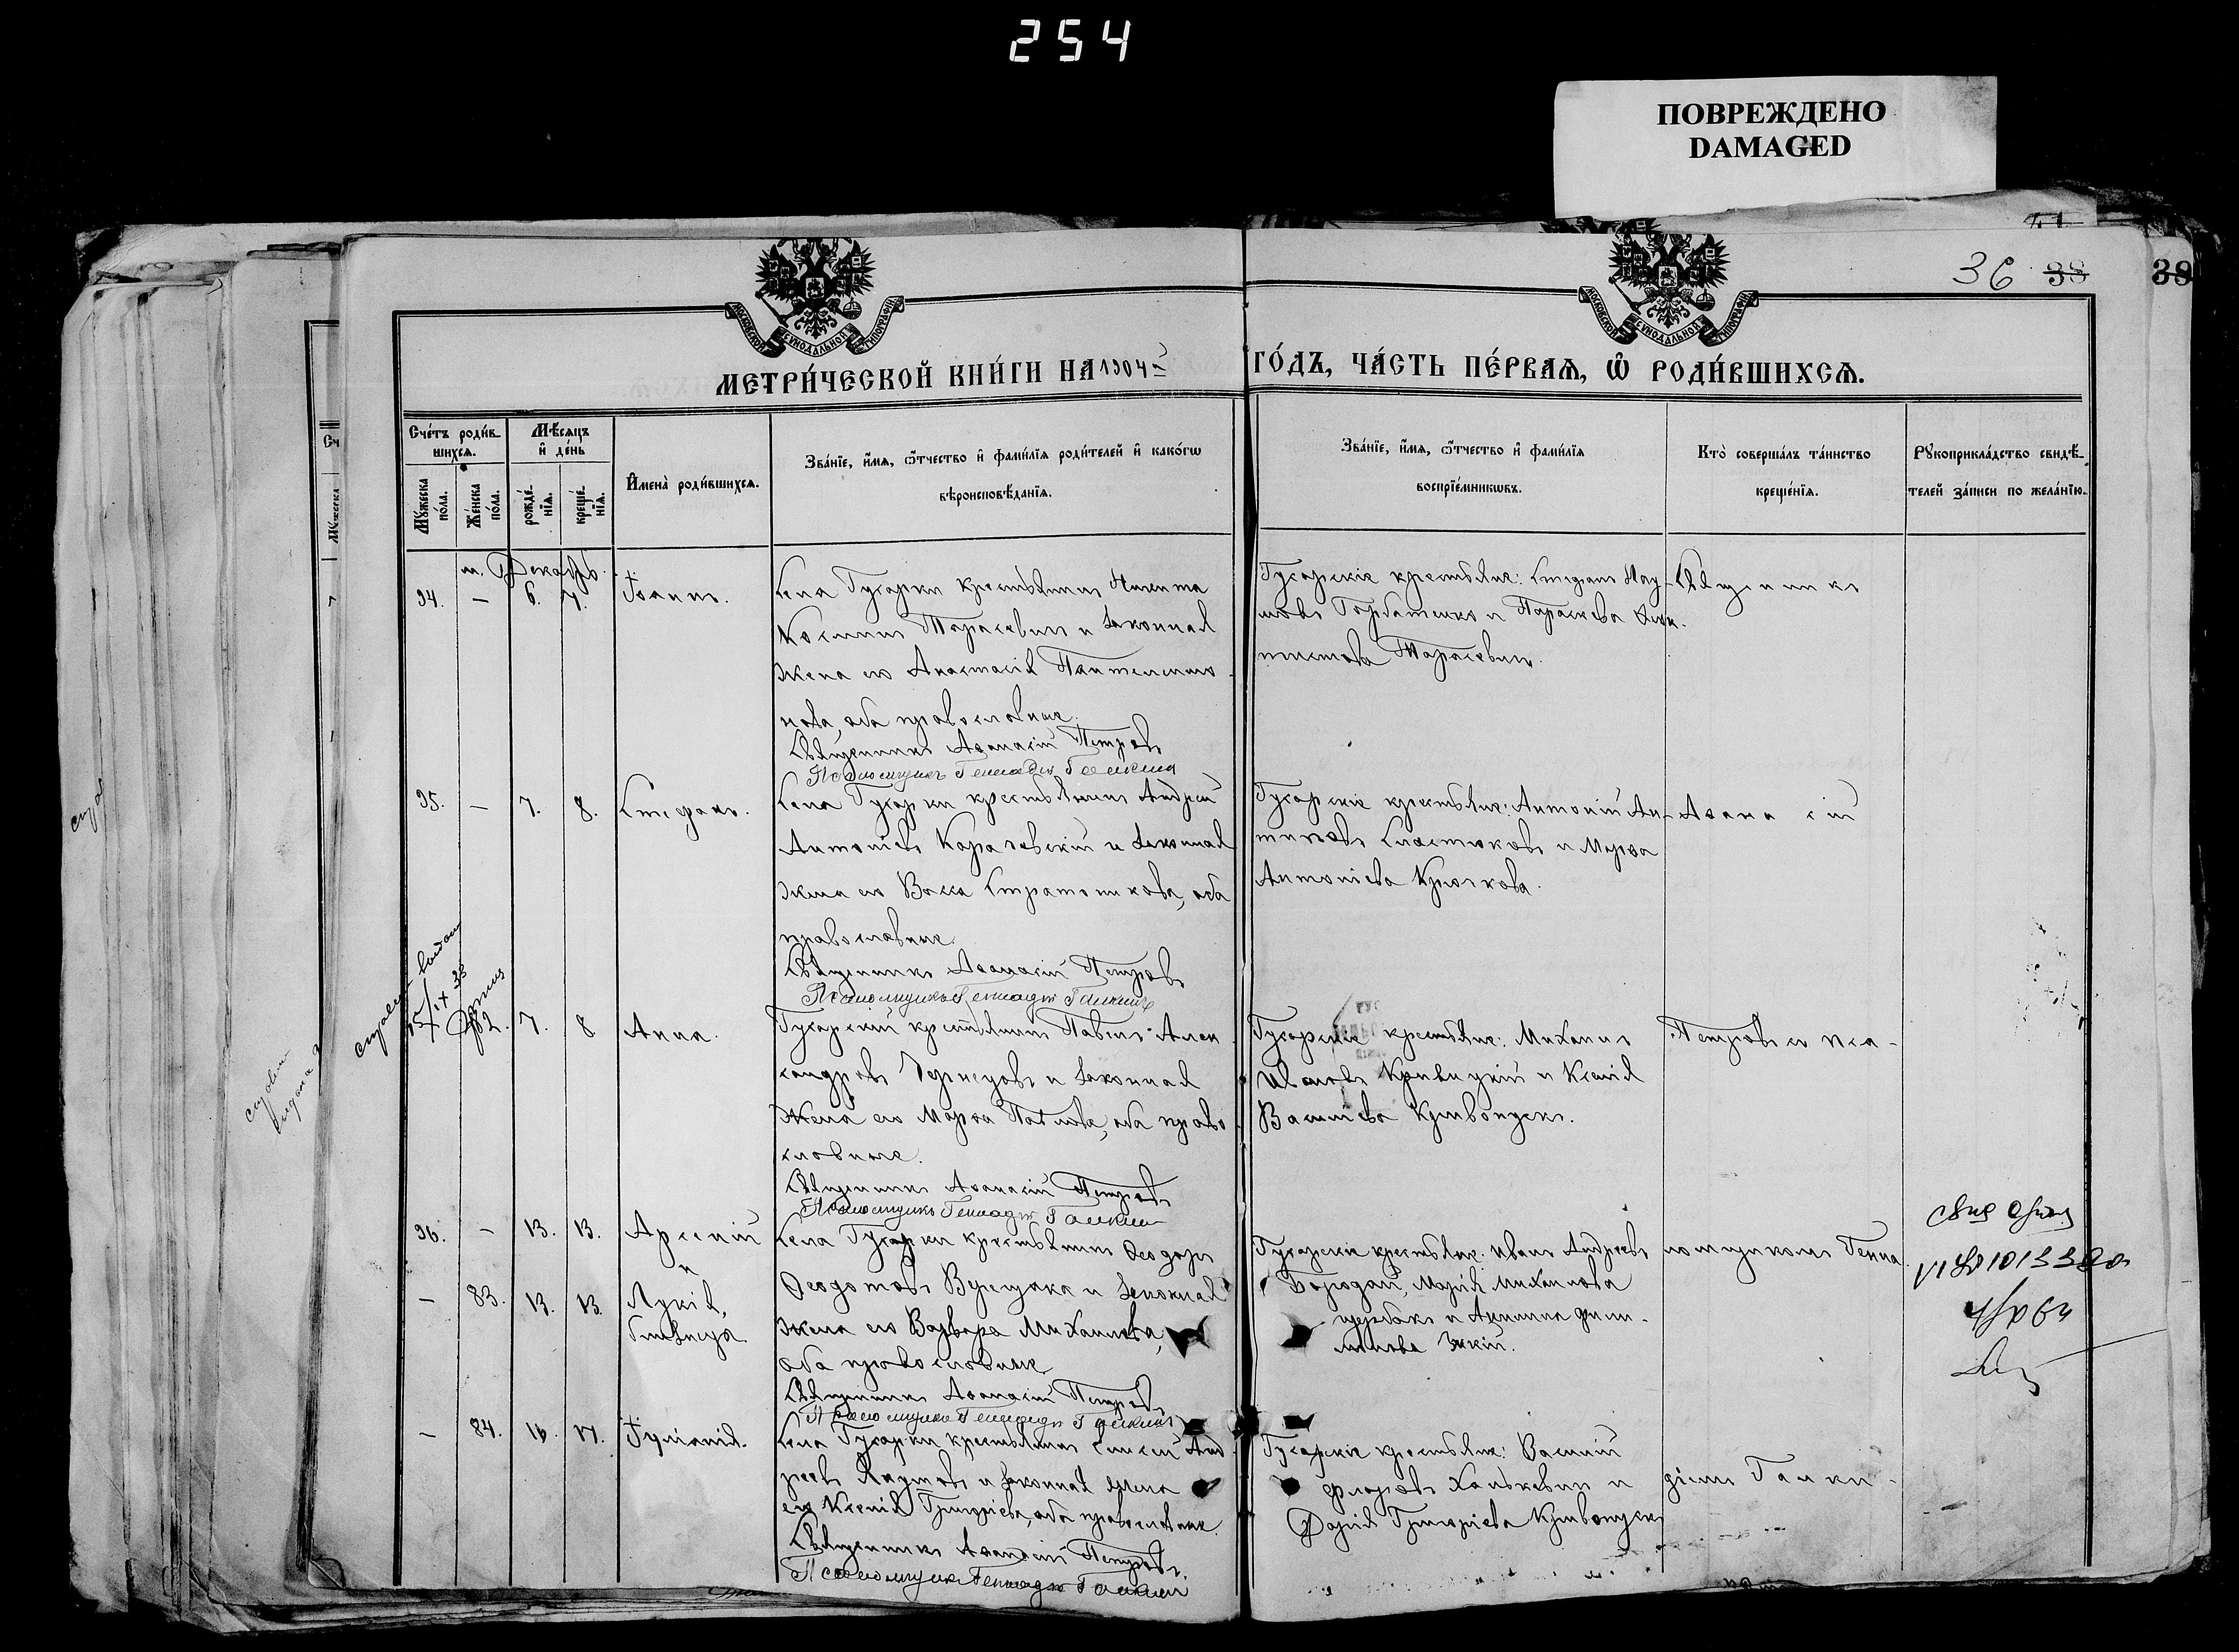 254
ПОВРЕЖДЕНО
DAMAGED
36 38
38
МОСКОВСКОЙ СѴНОДАЛЬНОЙ ТИПОГРАФІИ
МОСКОВСКОЙ СѴНОДАЛЬНОЙ ТИПОГРАФІИ
МЕТРИ́ЧЕСКОЙ КНИ́ГИ НА 1904 й ГО́ДЪ, ЧА́СТЬ ПЕ́РВАѦ, Ѡ РОДИ́ВШИХСѦ.
Сче́тъ роди́в-
шихсѧ.
Мꙋ́жеска по́ла.
Же́нска по́ла.
Мѣ́сѧцъ
и҆ де́нь
рожде́-
нїѧ.
креще́-
нїѧ.
И҆мена̀ роди́вшихсѧ.
Зва́нїе, и҆́мѧ, ѻ҆́тчество и҆ фами́лїѧ роди́телей и҆ како́гѡ
вѣроисповѣ́данїѧ.
Зва́нїе, и҆́мѧ, ѻ҆́тчество и҆ фами́лїѧ
воспрїе́мникѡвъ.
Кто̀ соверша́лъ та́инство
креще́нїѧ.
Рꙋкоприкла́дство свидѣ́-
телей за́писи по жела́нїю.
м. Декабрь.
94. — 6. 7. Іоаннъ.
Села Гусарки крестьянинъ Никита
Косминъ Тарасевичъ и законная
жена его Анастасія Пантелеимо-
нова, оба православные.
Священникъ Аѳанасій Петровъ
Псаломщикъ Геннадій Галкинъ
Гусарскіе крестьяне: Стефанъ Нау-
мовъ Горбатенко и Параскева
Тарасевичъ.
Священникъ
95. — 7. 8. Стефанъ.
Села Гусарки крестьянинъ Андрей
Антоніевъ Карачевскій и законная
жена его Васса Стратоникова, оба
православные
Священникъ Аѳанасій Петровъ
Псаломщикъ Геннадій Галкинъ
Гусарскіе крестьяне: Антоній Ан-
типовъ Сластюковъ и Марѳа
Антоніева Крючкова.
Аѳанасій
82. 7. 8 Анна.
Гусарскій крестьянинъ Павелъ Алек-
сандровъ и законная
жена его Марѳа Павлова, оба право-
славные.
Священникъ Аѳанасій Петровъ
Псаломщикъ Геннадій Галкинъ
Гусарскіе крестьяне: Михаилъ
Ивановъ Кривицкій и Ксенія
Василіева Кривопускъ.
Петровъ съ пса-
96. — 13. 13. Арсеній
и
— 83. 13. 13. Лукія,
близнецы.
Села Гусарки крестьянинъ Ѳеодоръ
Ѳеодотовъ и законная
жена его Варвара Михаилова,
оба православные
Священникъ Аѳанасій Петровъ
Псаломщикъ Геннадій Галкинъ
Гусарскіе крестьяне: Иванъ Андреевъ
Бородай, Марія Михаилова
Щербакъ и Акилина Фили-
монова
ломщикомъ Генна-
— 84. 16. 17. Іуліанія.
Села Гусарки крестьянинъ Анд-
реевъ и законная жена
его Ксенія Григоріева, оба православные.
Священникъ Аѳанасій Петровъ
Псаломщикъ Геннадій Галкинъ
Гусарскіе крестьяне: Василій
Флоровъ Халькевичъ и
Дарія Григоріева Кривопускъ
діемъ Галки-